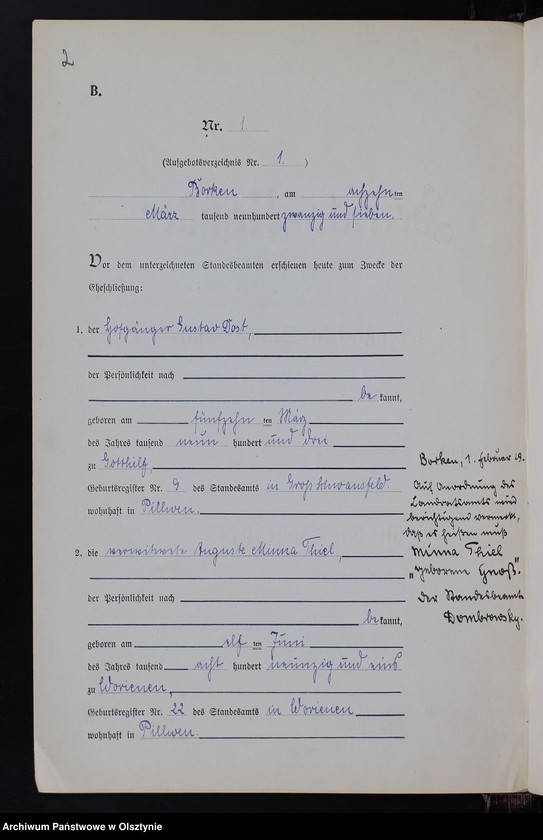 2
B.
Nr. 1.
(Aufgebotsverzeichnis Nr. 1.)
Borken, am achzehn ten
März tausend neunhundert zwanzig und sieben.
Vor dem unterzeichneten Standesbeamten erschienen heute zum Zwecke der
Eheschließung:
1. der Hofgänger Gustav Dost,
der Persönlichkeit nach
be kannt,
geboren am fünfzehn ten März
des Jahres tausend neun hundert und drei
zu Gotthilf,
Geburtsregister Nr. 9 des Standesamts in Groß Schwansfeld.
wohnhaft in Pillwen.
2. die verwitwete Auguste Minna Thiel,
der Persönlichkeit nach
be kannt,
geboren am elf ten Juni
des Jahres tausend acht hundert neunzig und eins
zu Worienen,
Geburtsregister Nr. 22 des Standesamts in Worienen
wohnhaft in Pillwen.
Borken, 1. Februar 29.
Auf Anordnung des
Landratsamts wird
berichtigend vermerkt,
daß es heißen muß
Minna Thiel
"geborene Gnoß".
Der Standesbeamte
Dombrowsky.
Archiwum Państwowe w Olsztynie